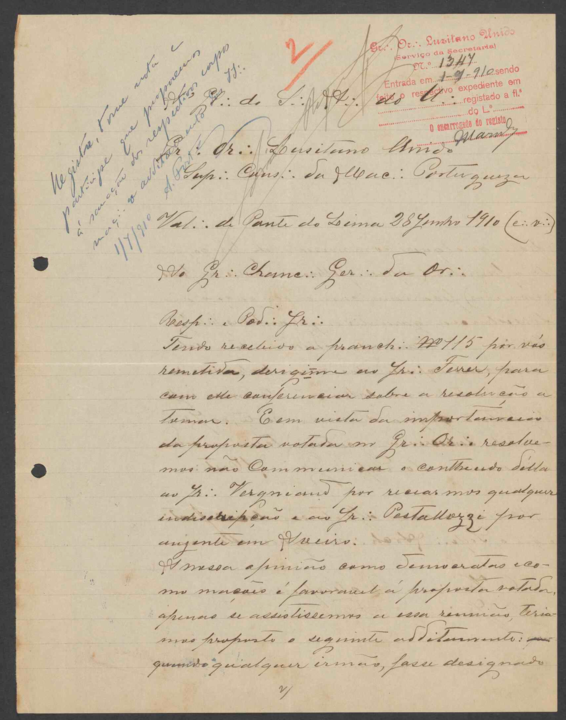 2/
Gr∴ Or∴ Lusitano Unido
(Serviço da Secretaria)
N.º 1347
Entrada em 1-7-910 sendo
o respectivo expediente em
registado a fl.ª
do L.º
O encarregado do registo
Registe, tome nota e
participe que proporemos
á sanção do respectivo corpo
maç∴ o additamento
1/7/910
Á∴ G∴ do S∴ A∴ do U∴
Gr∴ Or∴ Lusitano Unido
Sup∴ Cons∴ da Maç∴ Portugueza
Val∴ de Ponte do Lima 28 Junho 1910 (e∴ v∴)
Ao Gr∴ Chanc∴ Ger∴ da Or∴
Resp∴ e Pod∴ Ir∴
Tendo recebido a pranch∴ Nº 115 por vós
remetida, dirigi-me ao Ir∴ Ferrer, para
com elle conferenciar sobre a resolução a
tomar. E em vista da importancia
da proposta votada no Gr∴ Or∴ resolve-
mos não communicar o contheudo d'ella
ao Ir∴ Vergniaud por reciarmos qualquer
indiscripção e ao Ir∴ Pestallozzi por
auzente em Aveiro.
A nossa opinião como democratas e co-
mo mações é favoravel á proposta votada,
apenas se assistissemos a essa reunião, teria-
mos proposto o seguinte additamento:
quando qualquer irmão, fosse designado
2/